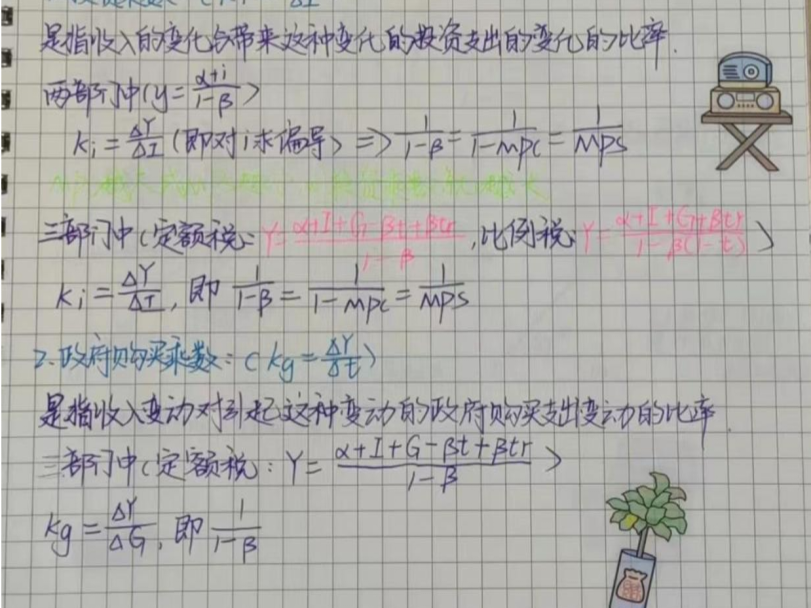 是指收入的变化与带来这种变化的投资支出的变化的比率.
两部门中(y=\frac{α+i}{1-β})
Ki=\frac{ΔY}{ΔI}(即对i求偏导)=>\frac{1}{1-β}=\frac{1}{1-MPC}=\frac{1}{MPS}
三部门中(定额税:Y=\frac{α+I+G-βt+βtr}{1-β},比例税:Y=\frac{α+I+G+βtr}{1-β(1-t)})
Ki=\frac{ΔY}{ΔI},即\frac{1}{1-β}=\frac{1}{1-MPC}=\frac{1}{MPS}
2.政府购买乘数:(kg=\frac{ΔY}{δt})
是指收入变动对引起这种变动的政府购买支出变动的比率
三部门中(定额税:Y=\frac{α+I+G-βt+βtr}{1-β})
Kg=\frac{ΔY}{ΔG},即\frac{1}{1-β}